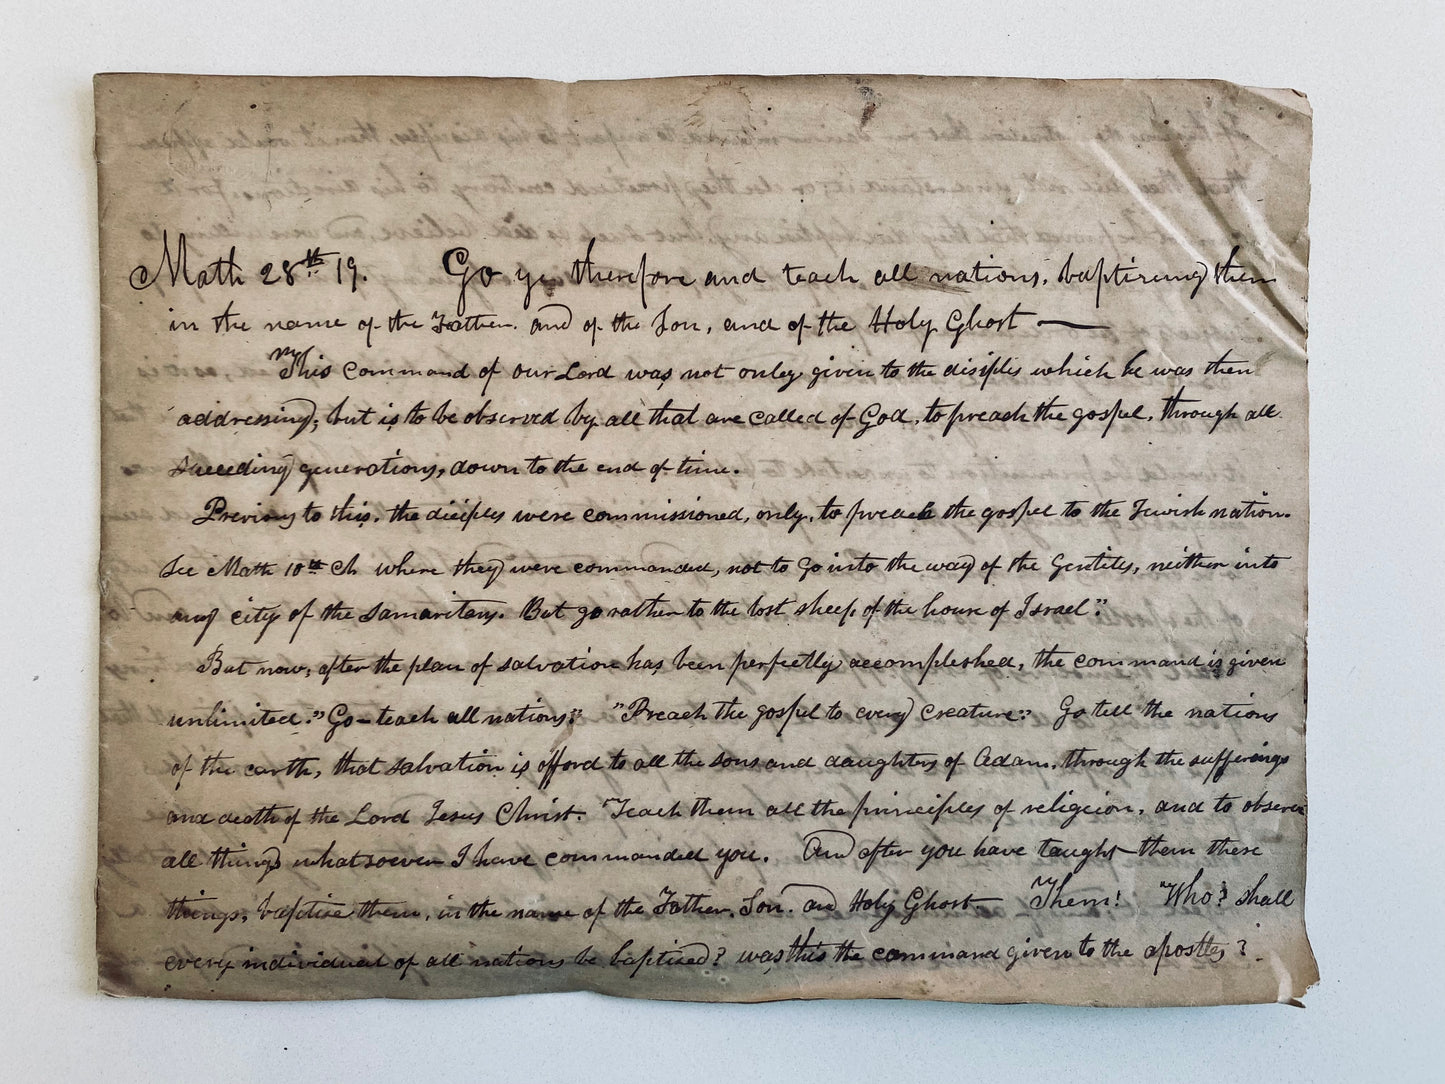 Math 28th 19. Go ye therefore and teach all nations, baptizing them
in the name of the Father. and of the Son, and of the Holy Ghost —
This command of our Lord was not only given to the disiples which he was then
addressing, but is to be observed by all that are called of God, to preach the gospel, through all
succeeding generations, down to the end of time.
Previous to this, the disiples were commissioned, only, to preach the gospel to the Jewish nation.
See Math 10th Ch where they were commanded, not to go into the way of the Gentiles, neither into
any city of the Samaritans. But go rather to the lost sheep of the house of Israel".
But now, after the plan of salvation has been perfectly accomplished, the command is given
unlimited. "Go – teach all nations" "Preach the gospel to every creature" Go tell the nations
of the earth, that salvation is offord to all the sons and daughters of Adam, through the sufferings
and death of the Lord Jesus Christ. Teach them all the principles of religeion, and to observe
all things whatsoever I have commanded you. And after you have taught them these
things, baptise them, in the name of the Father, Son. and Holy Ghost — Them! Who? shall
every individual of all nations be baptised? was this the command given to the apostles?